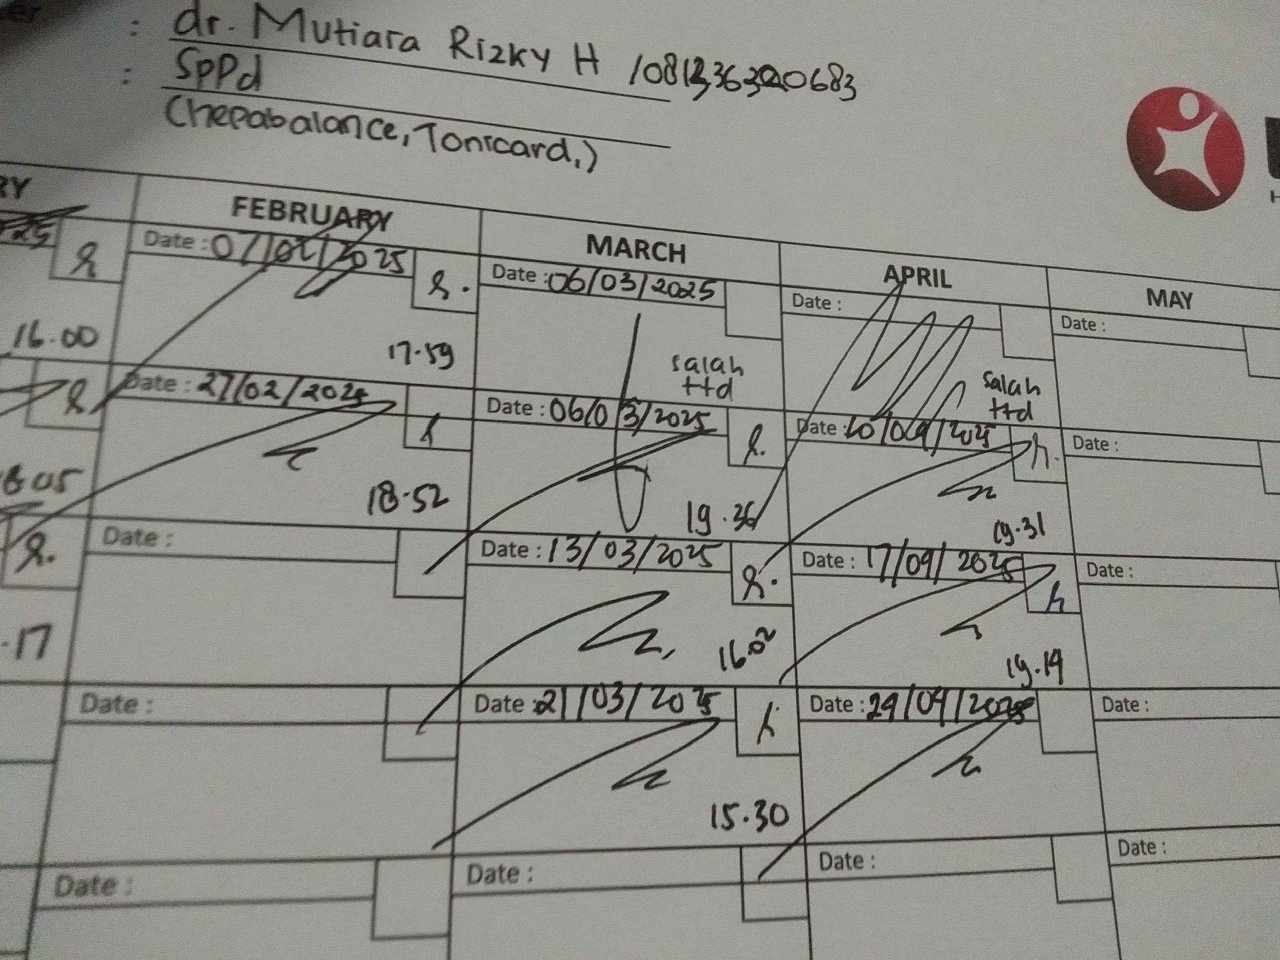 : dr. Mutiara Rizky H
: SpPd
(Hepabalance, Tonicard,)
RY
FEBRUARY
MARCH
APRIL
MAY
Date : 07/02/2025
Date : 06/03/2025
Date :
Date :
16.00
17.59
salah
ttd
salah
ttd
Date : 27/02/2025
Date : 06/03/2025
Date : 10/04/2025
Date :
18.52
19.36
19.31
Date :
Date : 13/03/2025
Date : 17/04/2025
Date :
.17
16.02
19.19
Date :
Date : 21/03/2025
Date : 24/04/2025
Date :
15.30
Date :
Date :
Date :
Date :